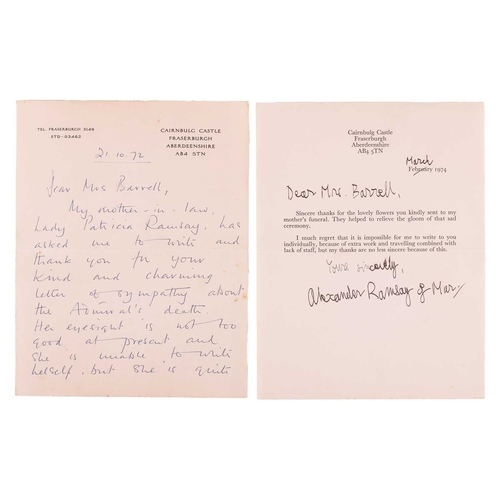 TEL. FRASERBURGH 3149
STD-03462
CAIRNBULG CASTLE
FRASERBURGH
ABERDEENSHIRE
AB4 5TN
21.10.72
Dear Mrs Barrell,
My mother-in-law,
Lady Patricia Ramsay, has
asked me to write and
thank you for your
kind and charming
letter of sympathy about
the Admiral's death.
Her eyesight is not too
good at present and
she is unable to write
herself, but she is quite
Cairnbulg Castle
Fraserburgh
Aberdeenshire
AB4 5TN
March
February 1974
Dear Mrs. Barrell,
Sincere thanks for the lovely flowers you kindly sent to my
mother's funeral. They helped to relieve the gloom of that sad
ceremony.
I much regret that it is impossible for me to write to you
individually, because of extra work and travelling combined with
lack of staff, but my thanks are no less sincere because of this.
Yours sincerely,
Alexander Ramsay of Mar